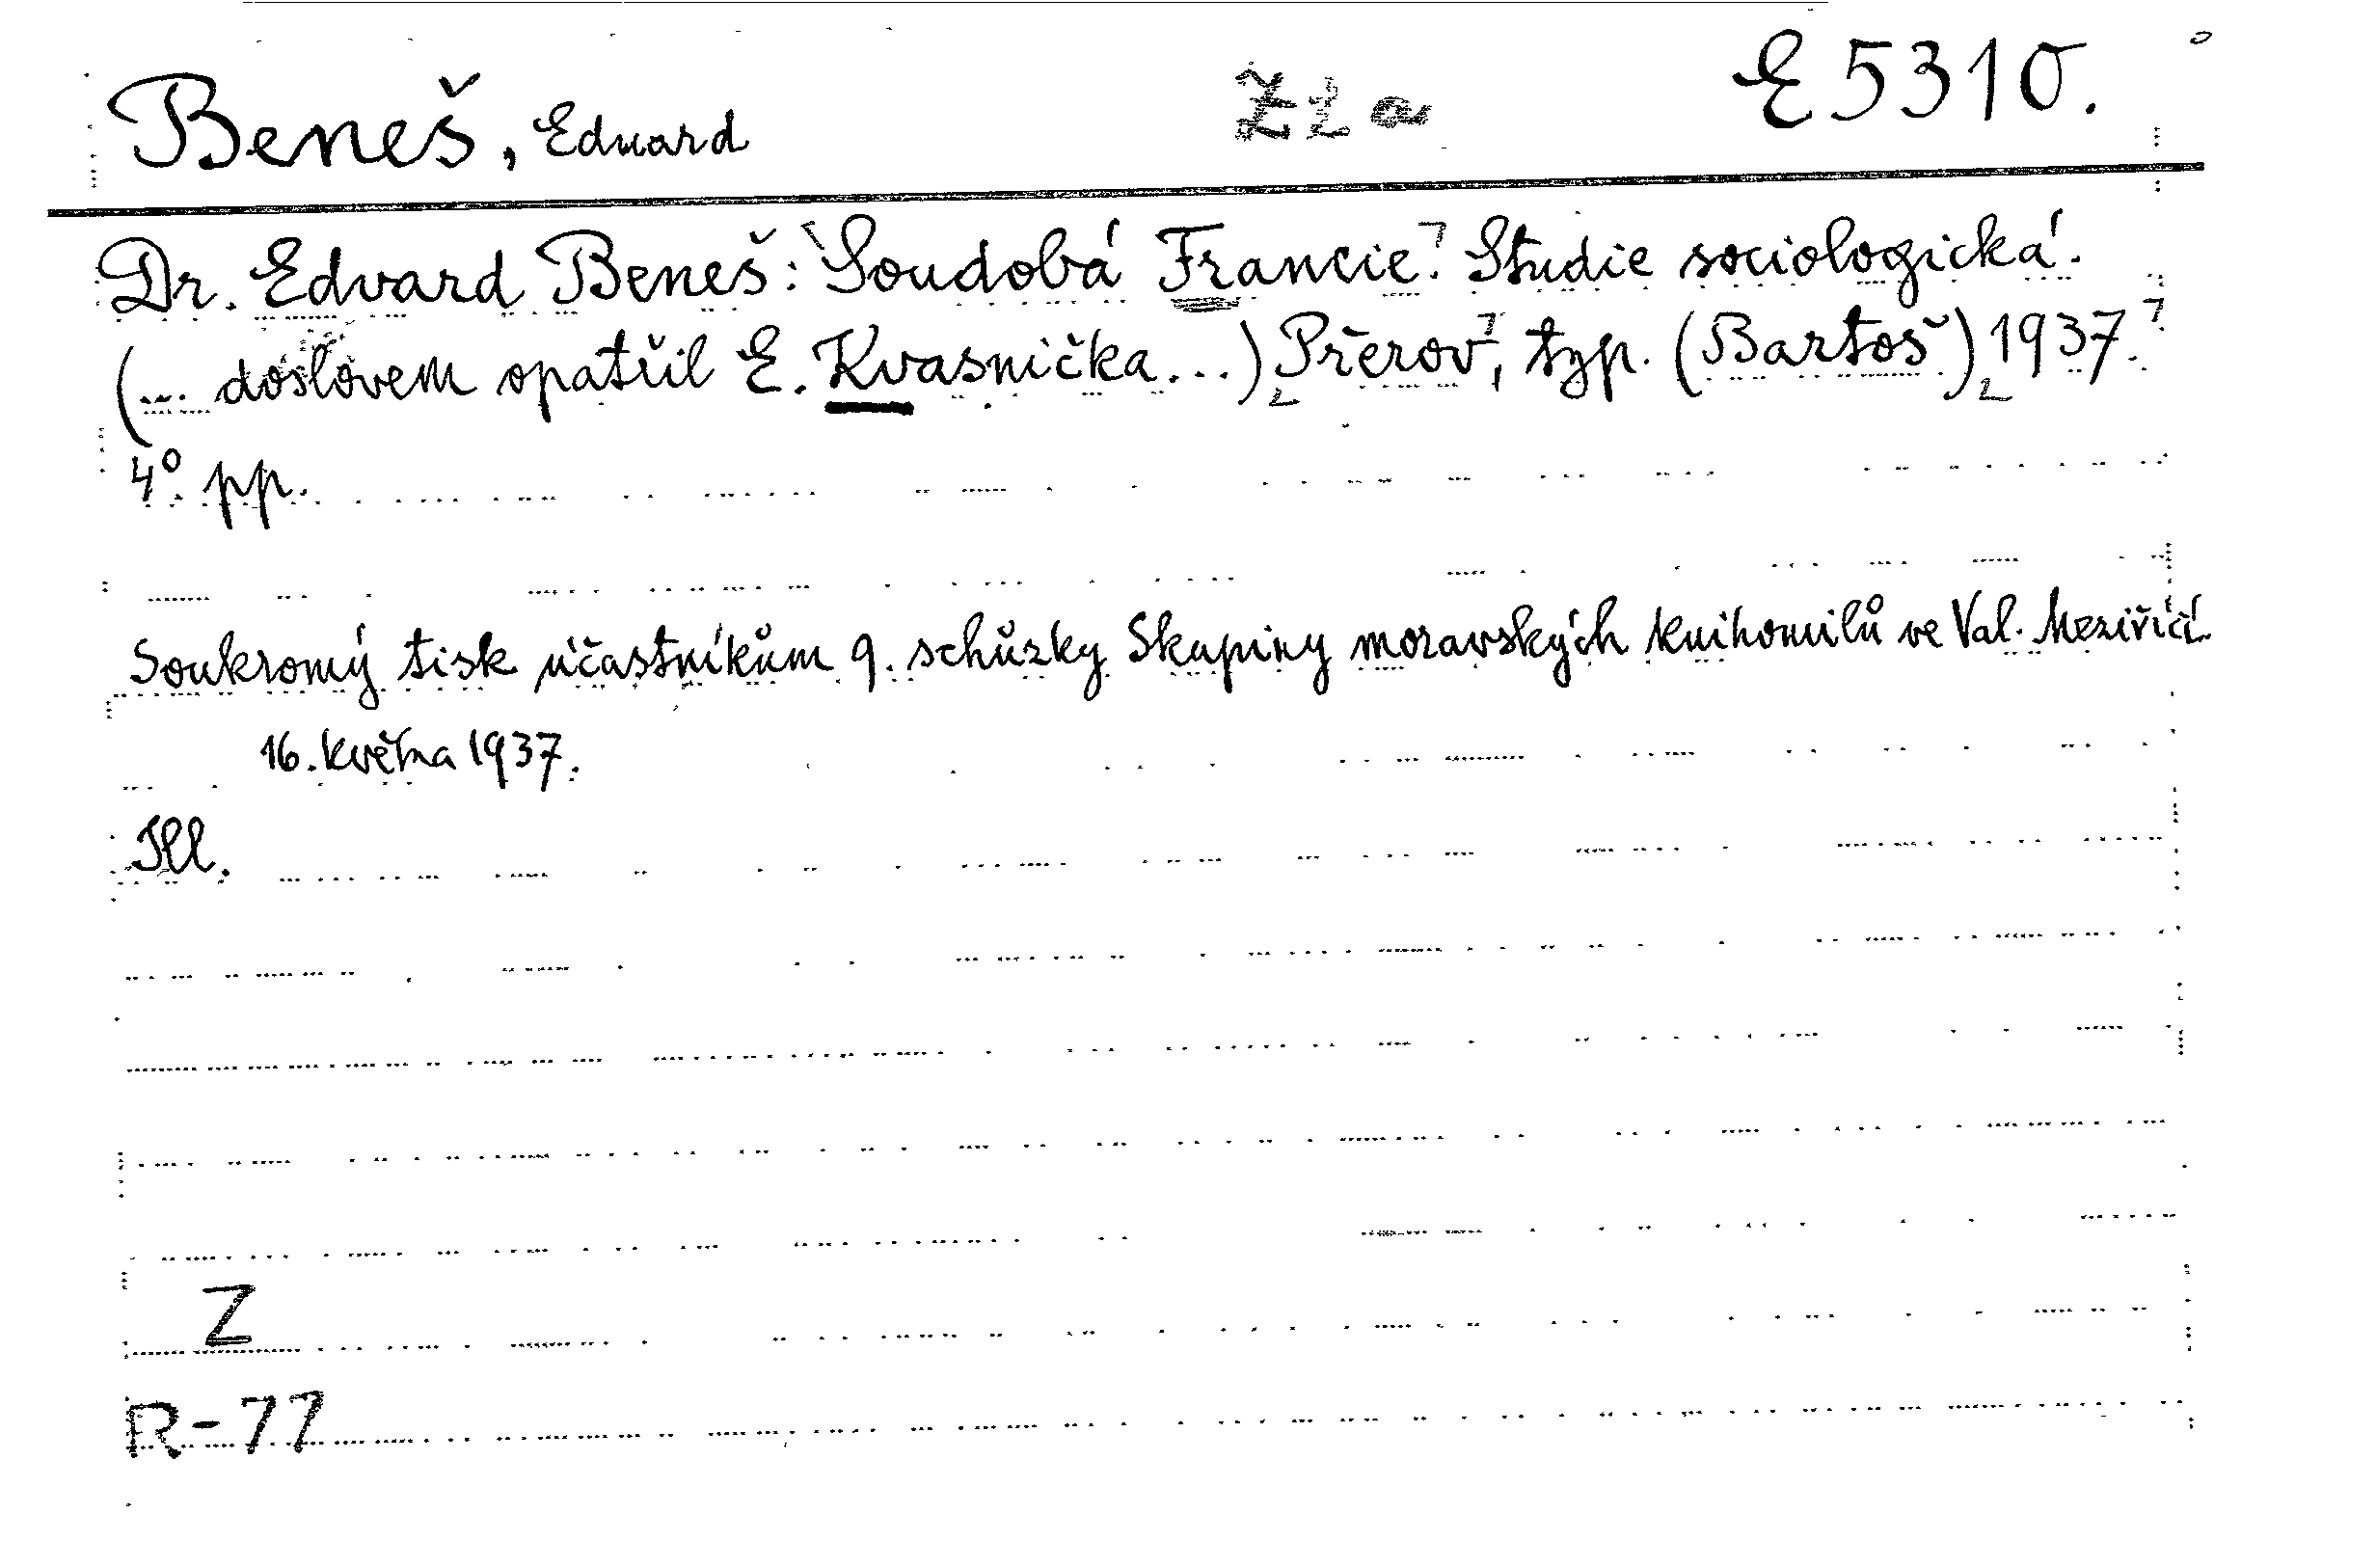 Beneš, Eduard
E 5310.
Dr. Edvard Beneš: Soudobá Francie. Studie sociologická.
(... doslovem opatřil E. Kvasnička...) Přerov, typ. (Bartoš) 1937.
4º. pp.
Soukromý tisk účastníkům 9. schůzky Skupiny moravských knihomilů ve Val. Meziříčí
16. května 1937.
Ill.
Z
R-77